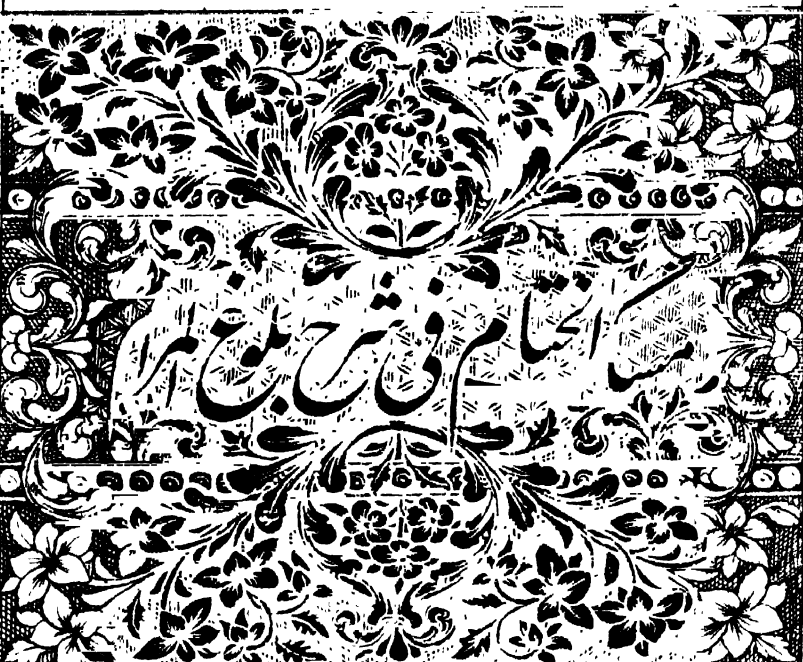 مسك الختام في شرح بلوغ المرام